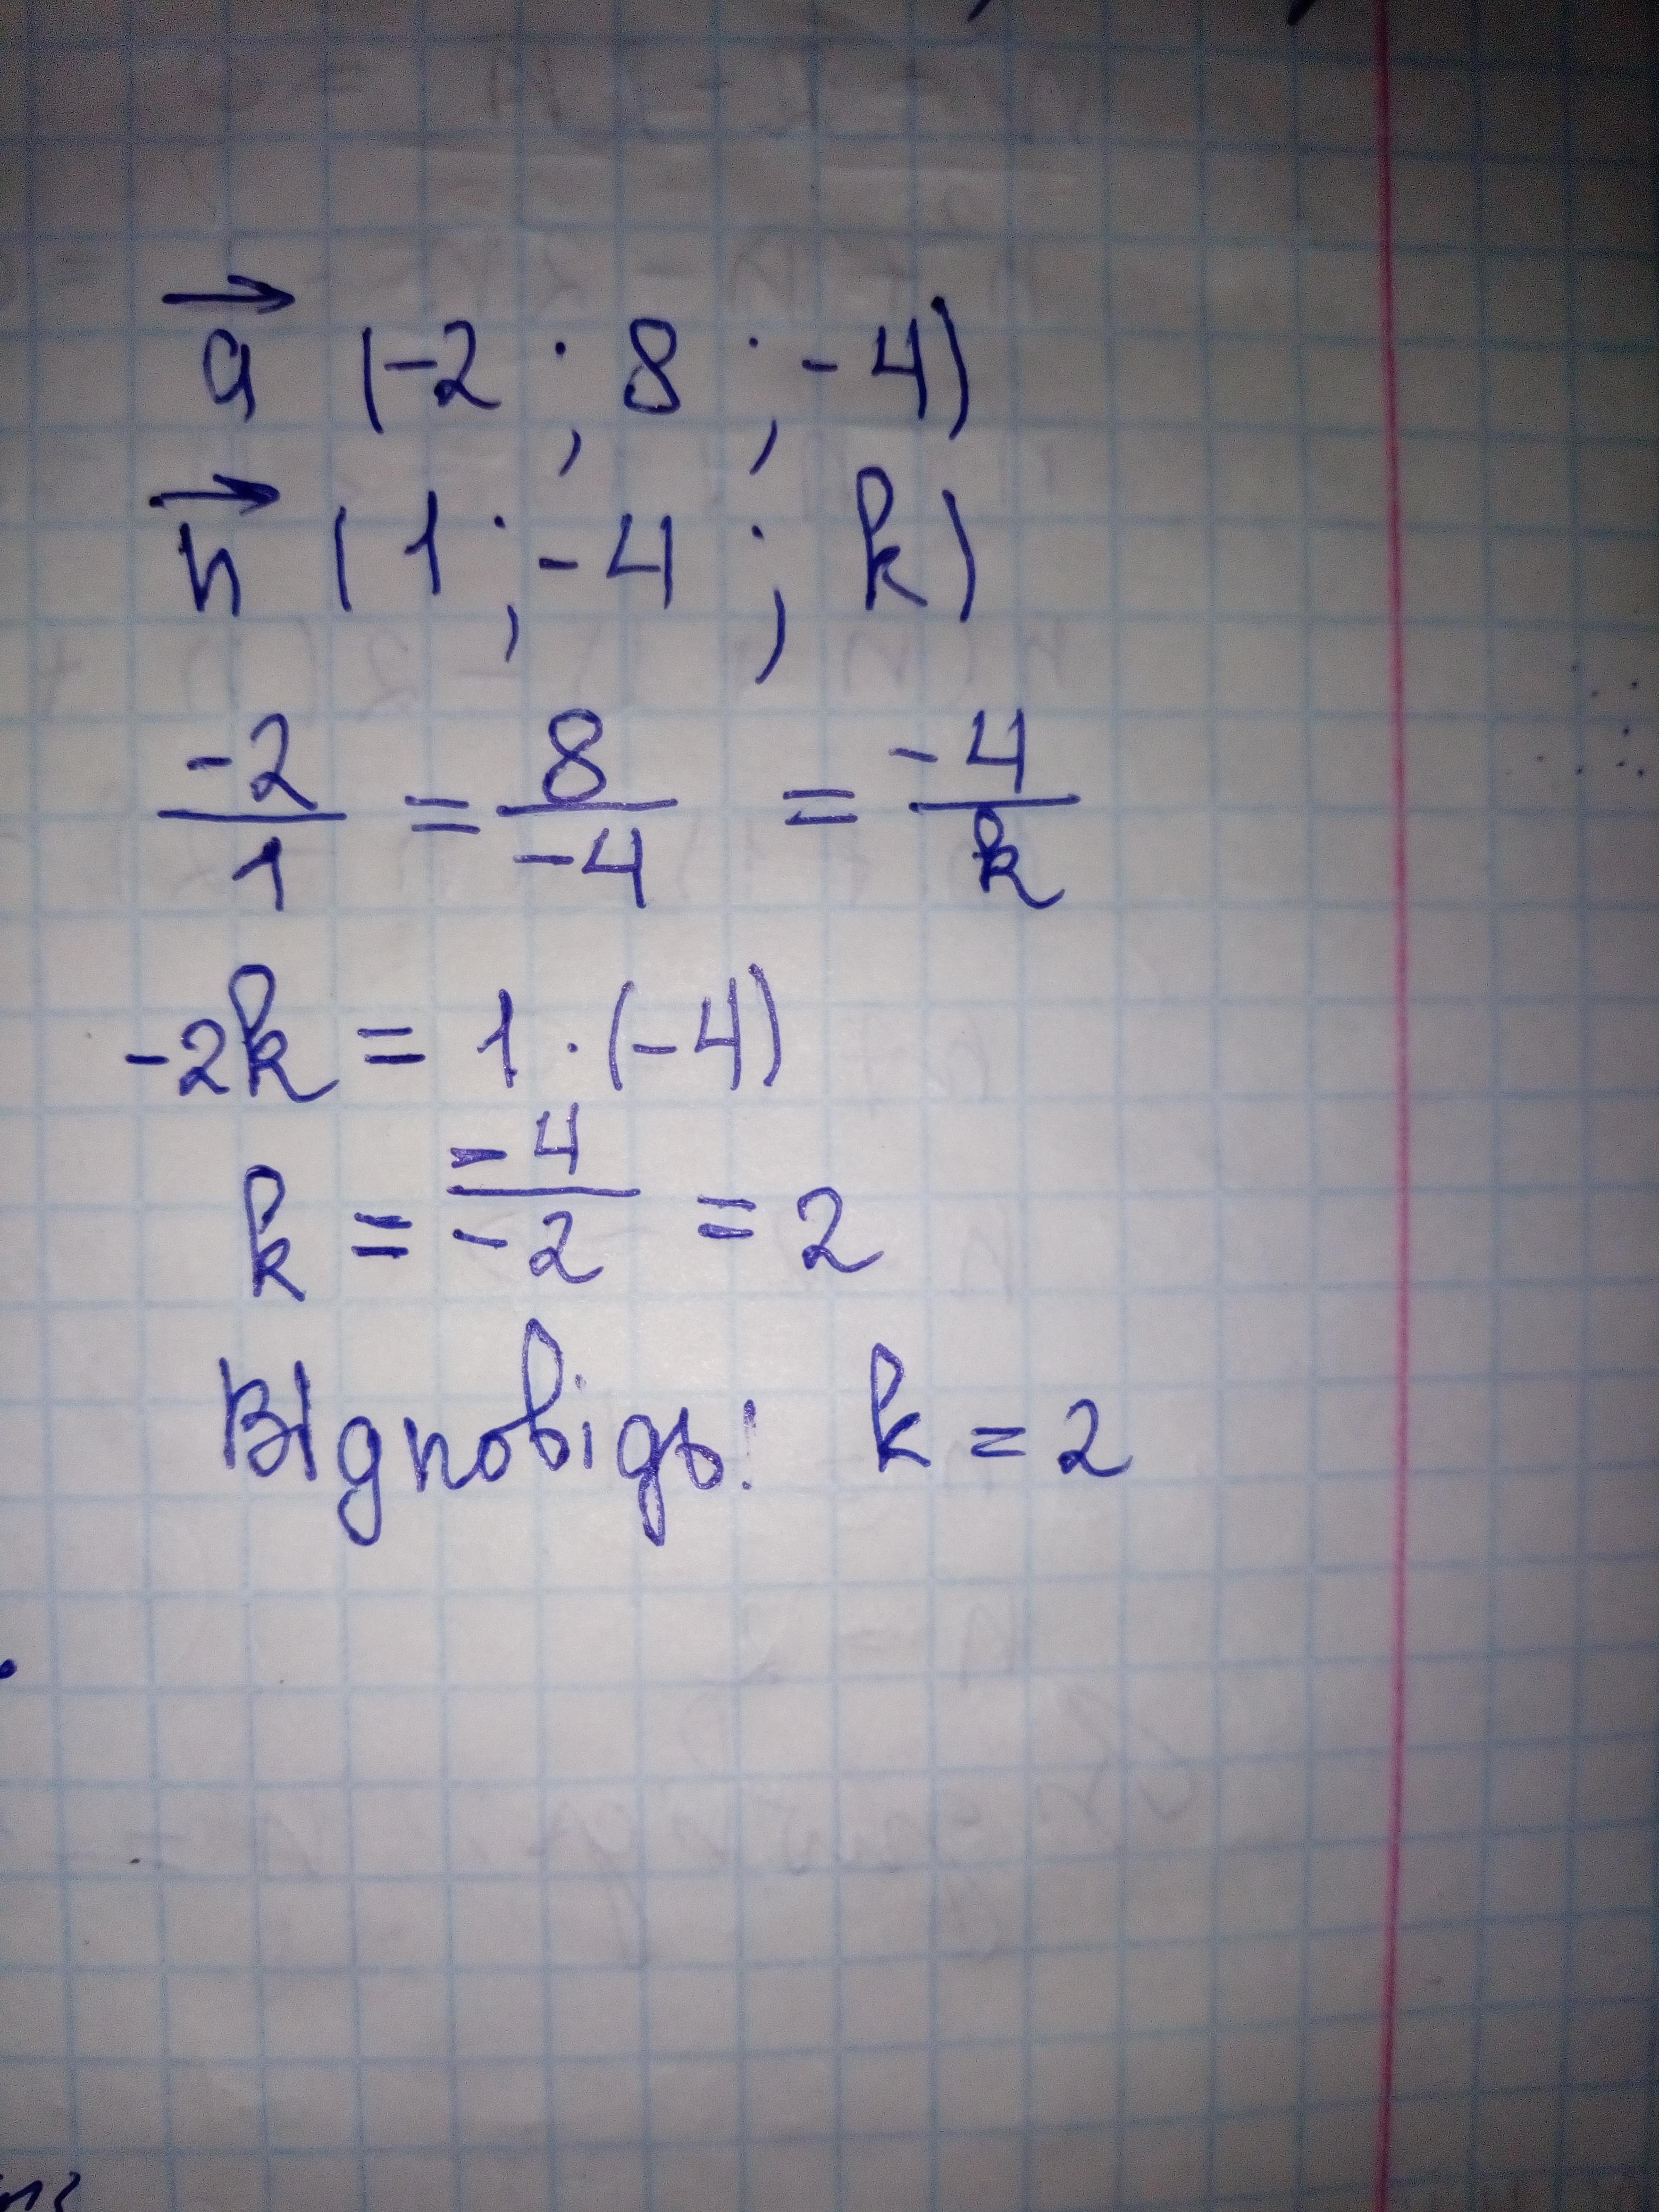 a (-2 ; 8 ; -4)
n (1 ; -4 ; k)
-2/1 = 8/-4 = -4/k
-2k = 1 · (-4)
k = -4/-2 = 2
Відповідь: k = 2